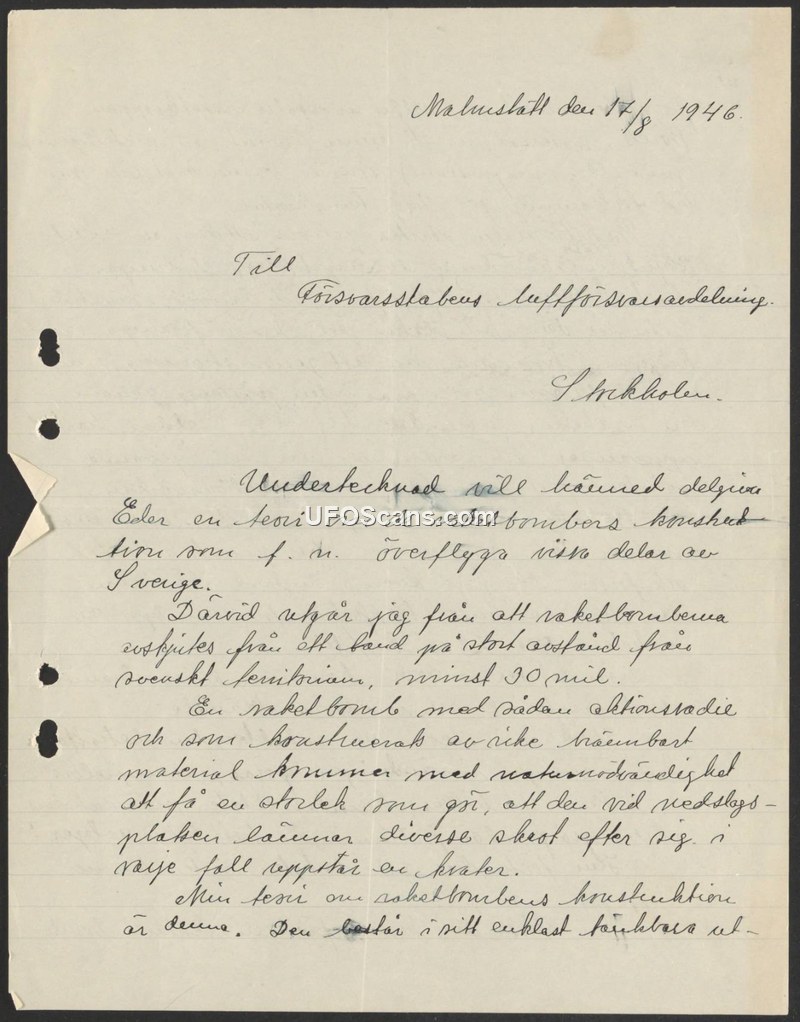 Malmslätt den 17/8 1946.
Till
Försvarsstabens luftförsvarsavdelning.
Stockholm.
Undertecknad vill härmed delgiva
Eder en teori UFOScans.com bombers konstruk
tion som f. n. överflyga vissa delar av
Sverige.
Därvid utgår jag från att raketbomberna
avskjutes från ett land på stort avstånd från
svenskt territorium, minst 30 mil.
En raketbomb med sådan aktionsradie
och som konstruerats av icke brännbart
material kommer med naturnödvändighet
att få en storlek som gör, att den vid nedslags-
platsen lämnar diverse skrot efter sig. i
varje fall uppstår en krater.
Min teori om raketbombens konstruktion
är denna. Den består i sitt enklast tänkbara ut-